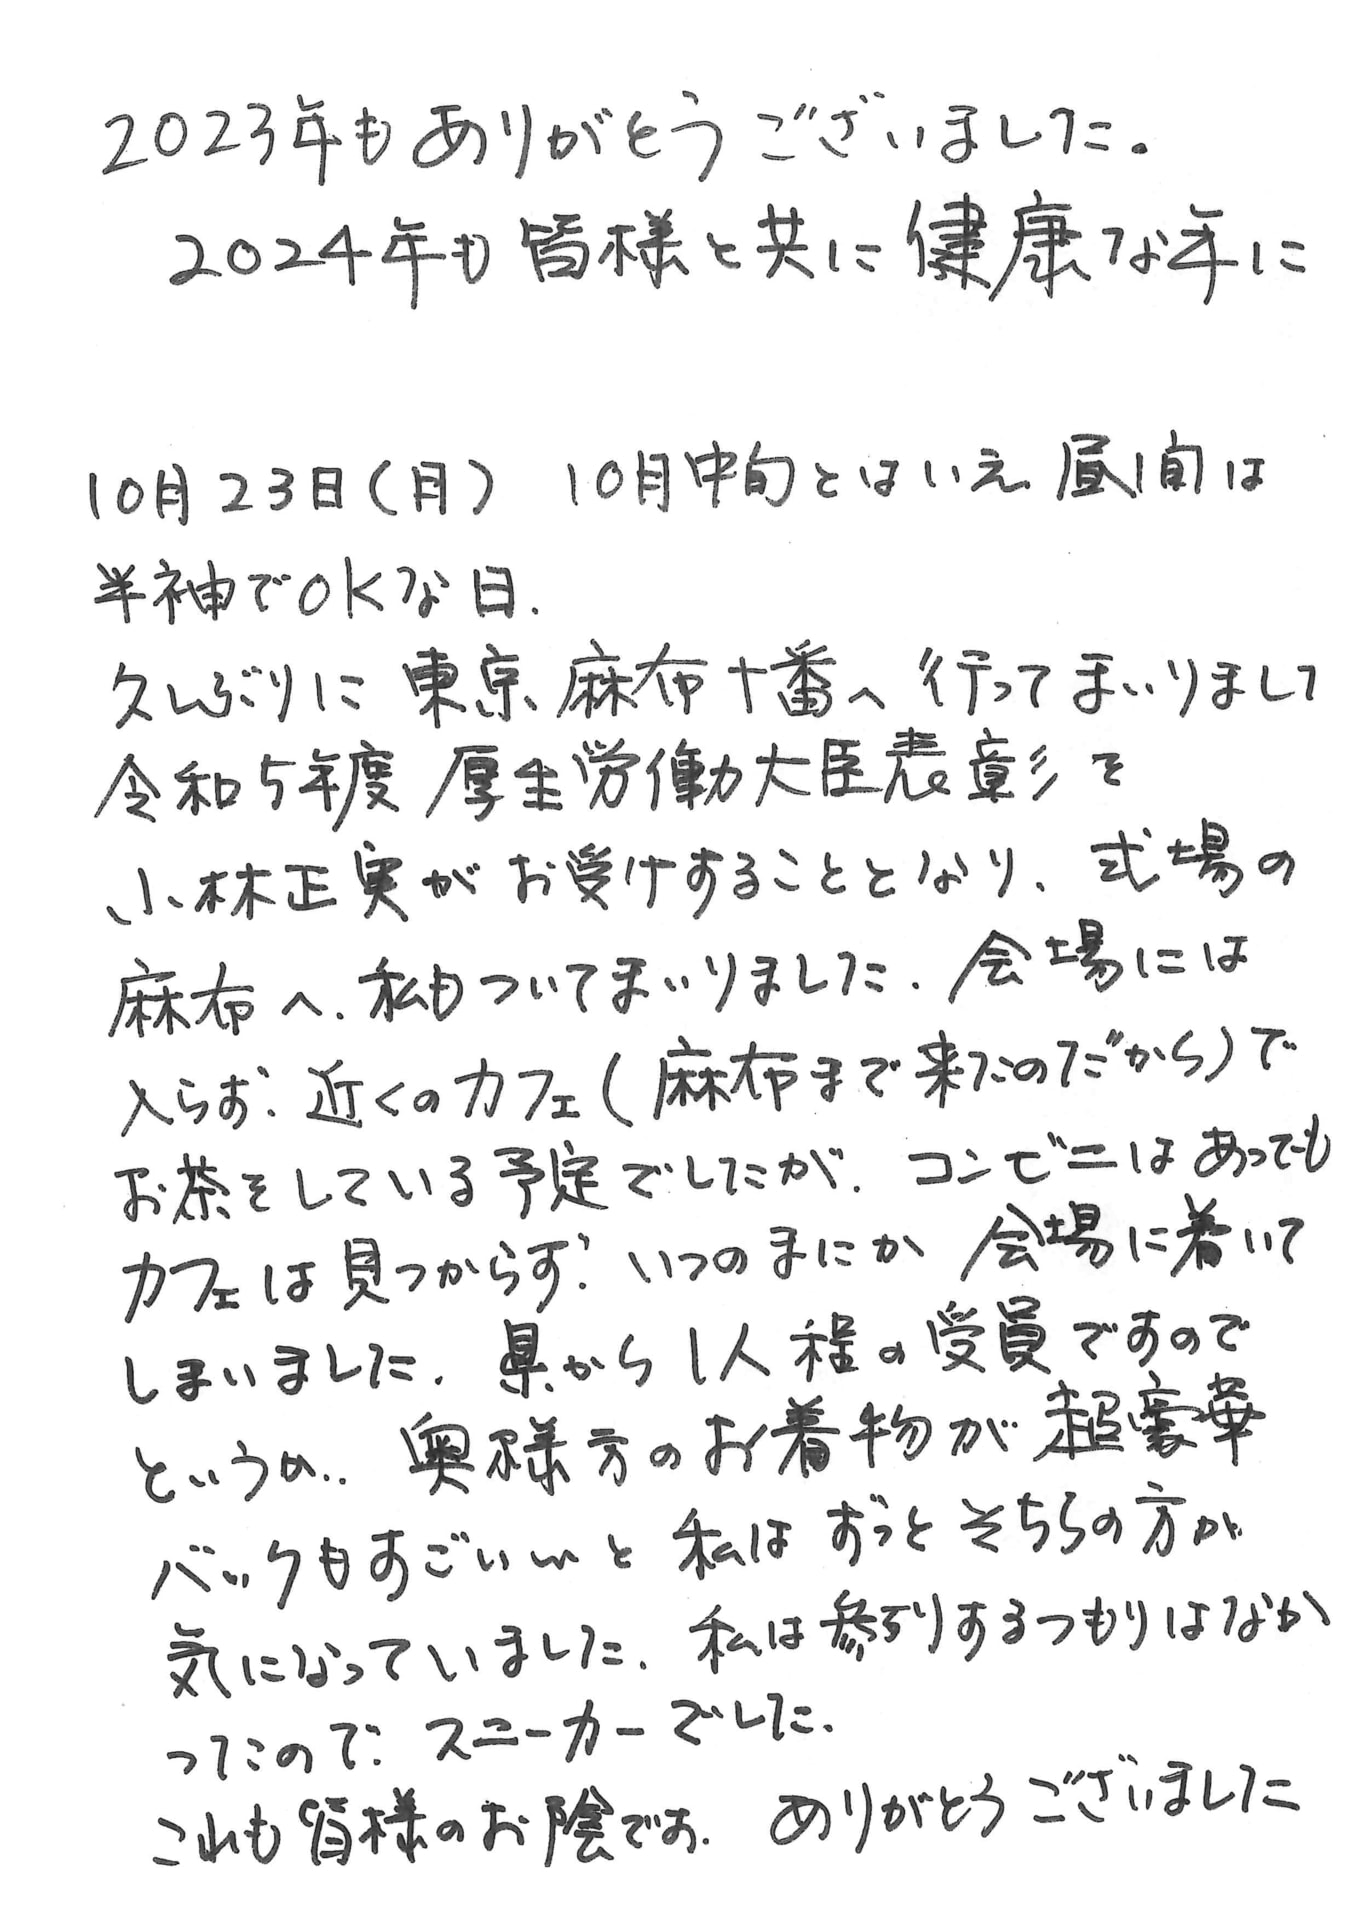 2023年もありがとうございました.
2024年も皆様と共に健康な年に
10月23日(月) 10月中旬とはいえ、昼間は
半袖でOKな日.
久しぶりに東京、麻布十番へ行ってまいりまして
令和5年度 厚生労働大臣表彰を
小林正実がお受けすることとなり、式場の
麻布へ.私もついてまいりました.会場には
入らず.近くのカフェ(麻布まで来たのだから)で
お茶をしている予定でしたが.コンビニはあっても
カフェは見つからず.いつのまにか会場に着いて
しまいました.県から1人程の受員ですので
というか..奥様方のお着物が超豪華
バックもすごい〜と私はずっとそちらの方が
気になっていました.私は参列するつもりはなか
ったので.スニーカーでした.
これも皆様のお陰です.ありがとうございました